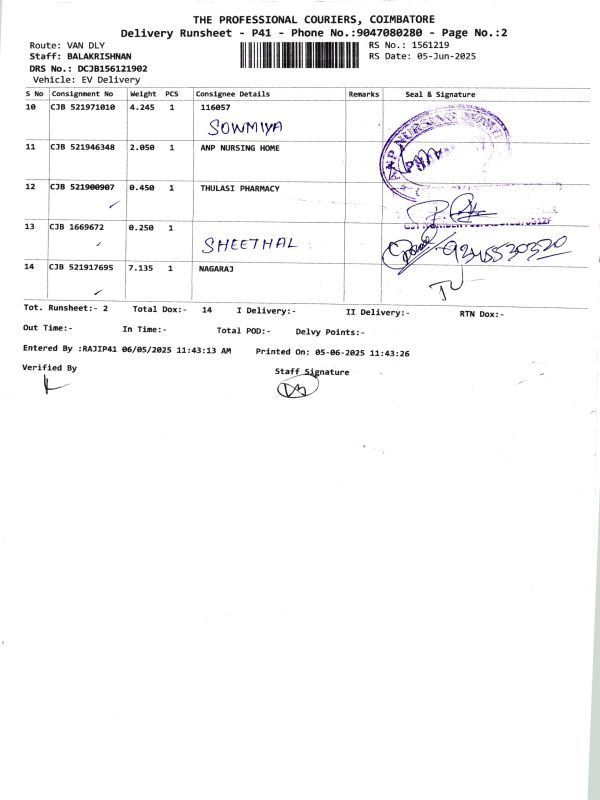 THE PROFESSIONAL COURIERS, COIMBATORE
Delivery Runsheet - P41 - Phone No.:9047080280 - Page No.:2
Route: VAN DLY
RS No.: 1561219
Staff: BALAKRISHNAN
RS Date: 05-Jun-2025
DRS No.: DCJB156121902
Vehicle: EV Delivery
S No Consignment No Weight PCS Consignee Details Remarks Seal & Signature
10 CJB 521971010 4.245 1 116057
SOWMIYA
11 CJB 521946348 2.050 1 ANP NURSING HOME
ANP NURSING HOME
12 CJB 521900907 0.450 1 THULASI PHARMACY
13 CJB 1669672 0.250 1
SHEETHAL
14 CJB 521917695 7.135 1 NAGARAJ
Tot. Runsheet:- 2 Total Dox:- 14 I Delivery:- II Delivery:- RTN Dox:-
Out Time:- In Time:- Total POD:- Delvy Points:-
Entered By :RAJIP41 06/05/2025 11:43:13 AM Printed On: 05-06-2025 11:43:26
Verified By
Staff Signature